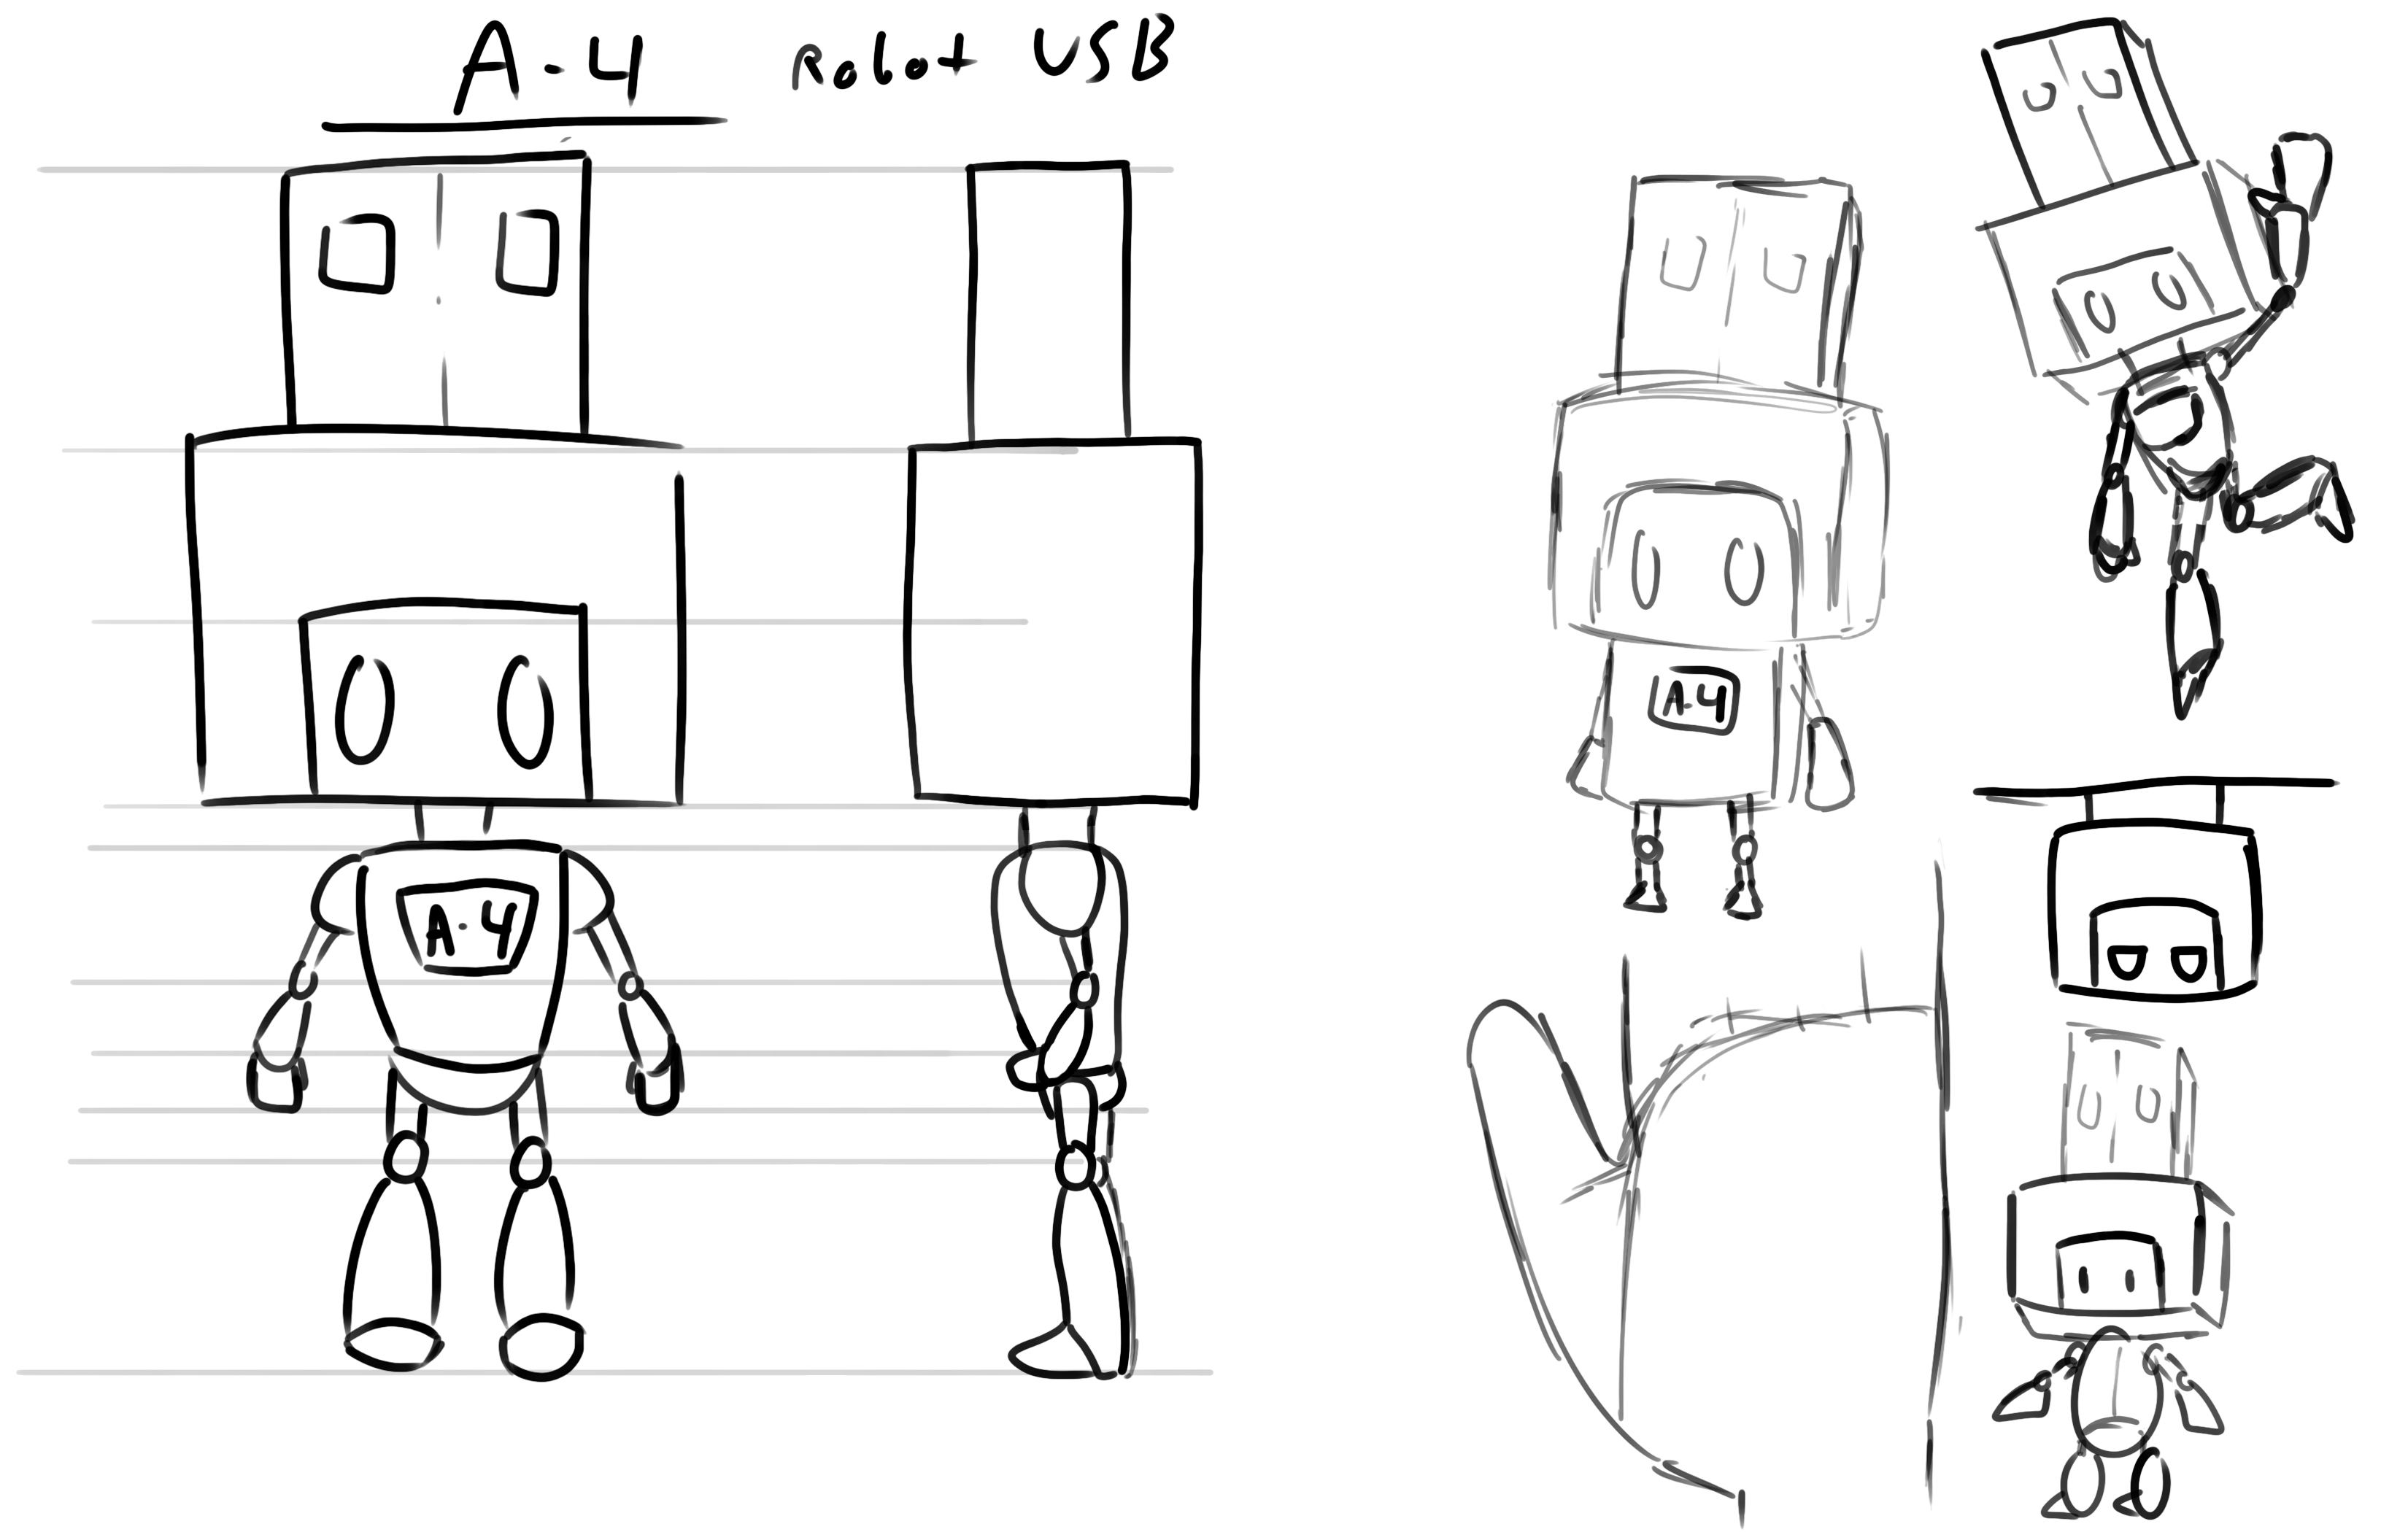 A-4 Robot USB
A-4
A.4